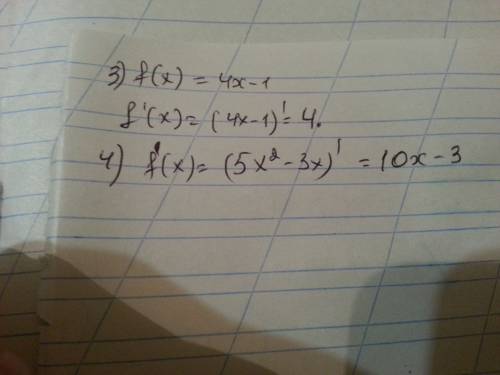 3) f(x) = 4x-1
f'(x) = (4x-1)' = 4.
4) f'(x) = (5x² - 3x)' = 10x - 3